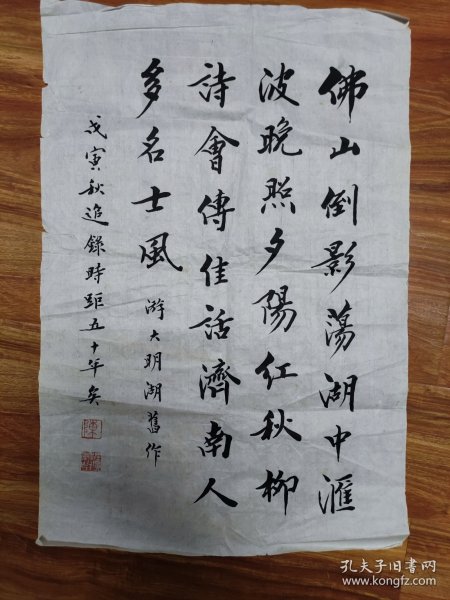 佛山倒影蕩湖中滙
波晚照夕陽紅秋柳
詩會傳佳話濟南人
多名士風
游大明湖舊作
戊寅秋追錄時距五十年矣
孔夫子旧书网
www.kongfz.com